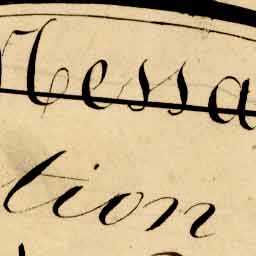 Messa
tion